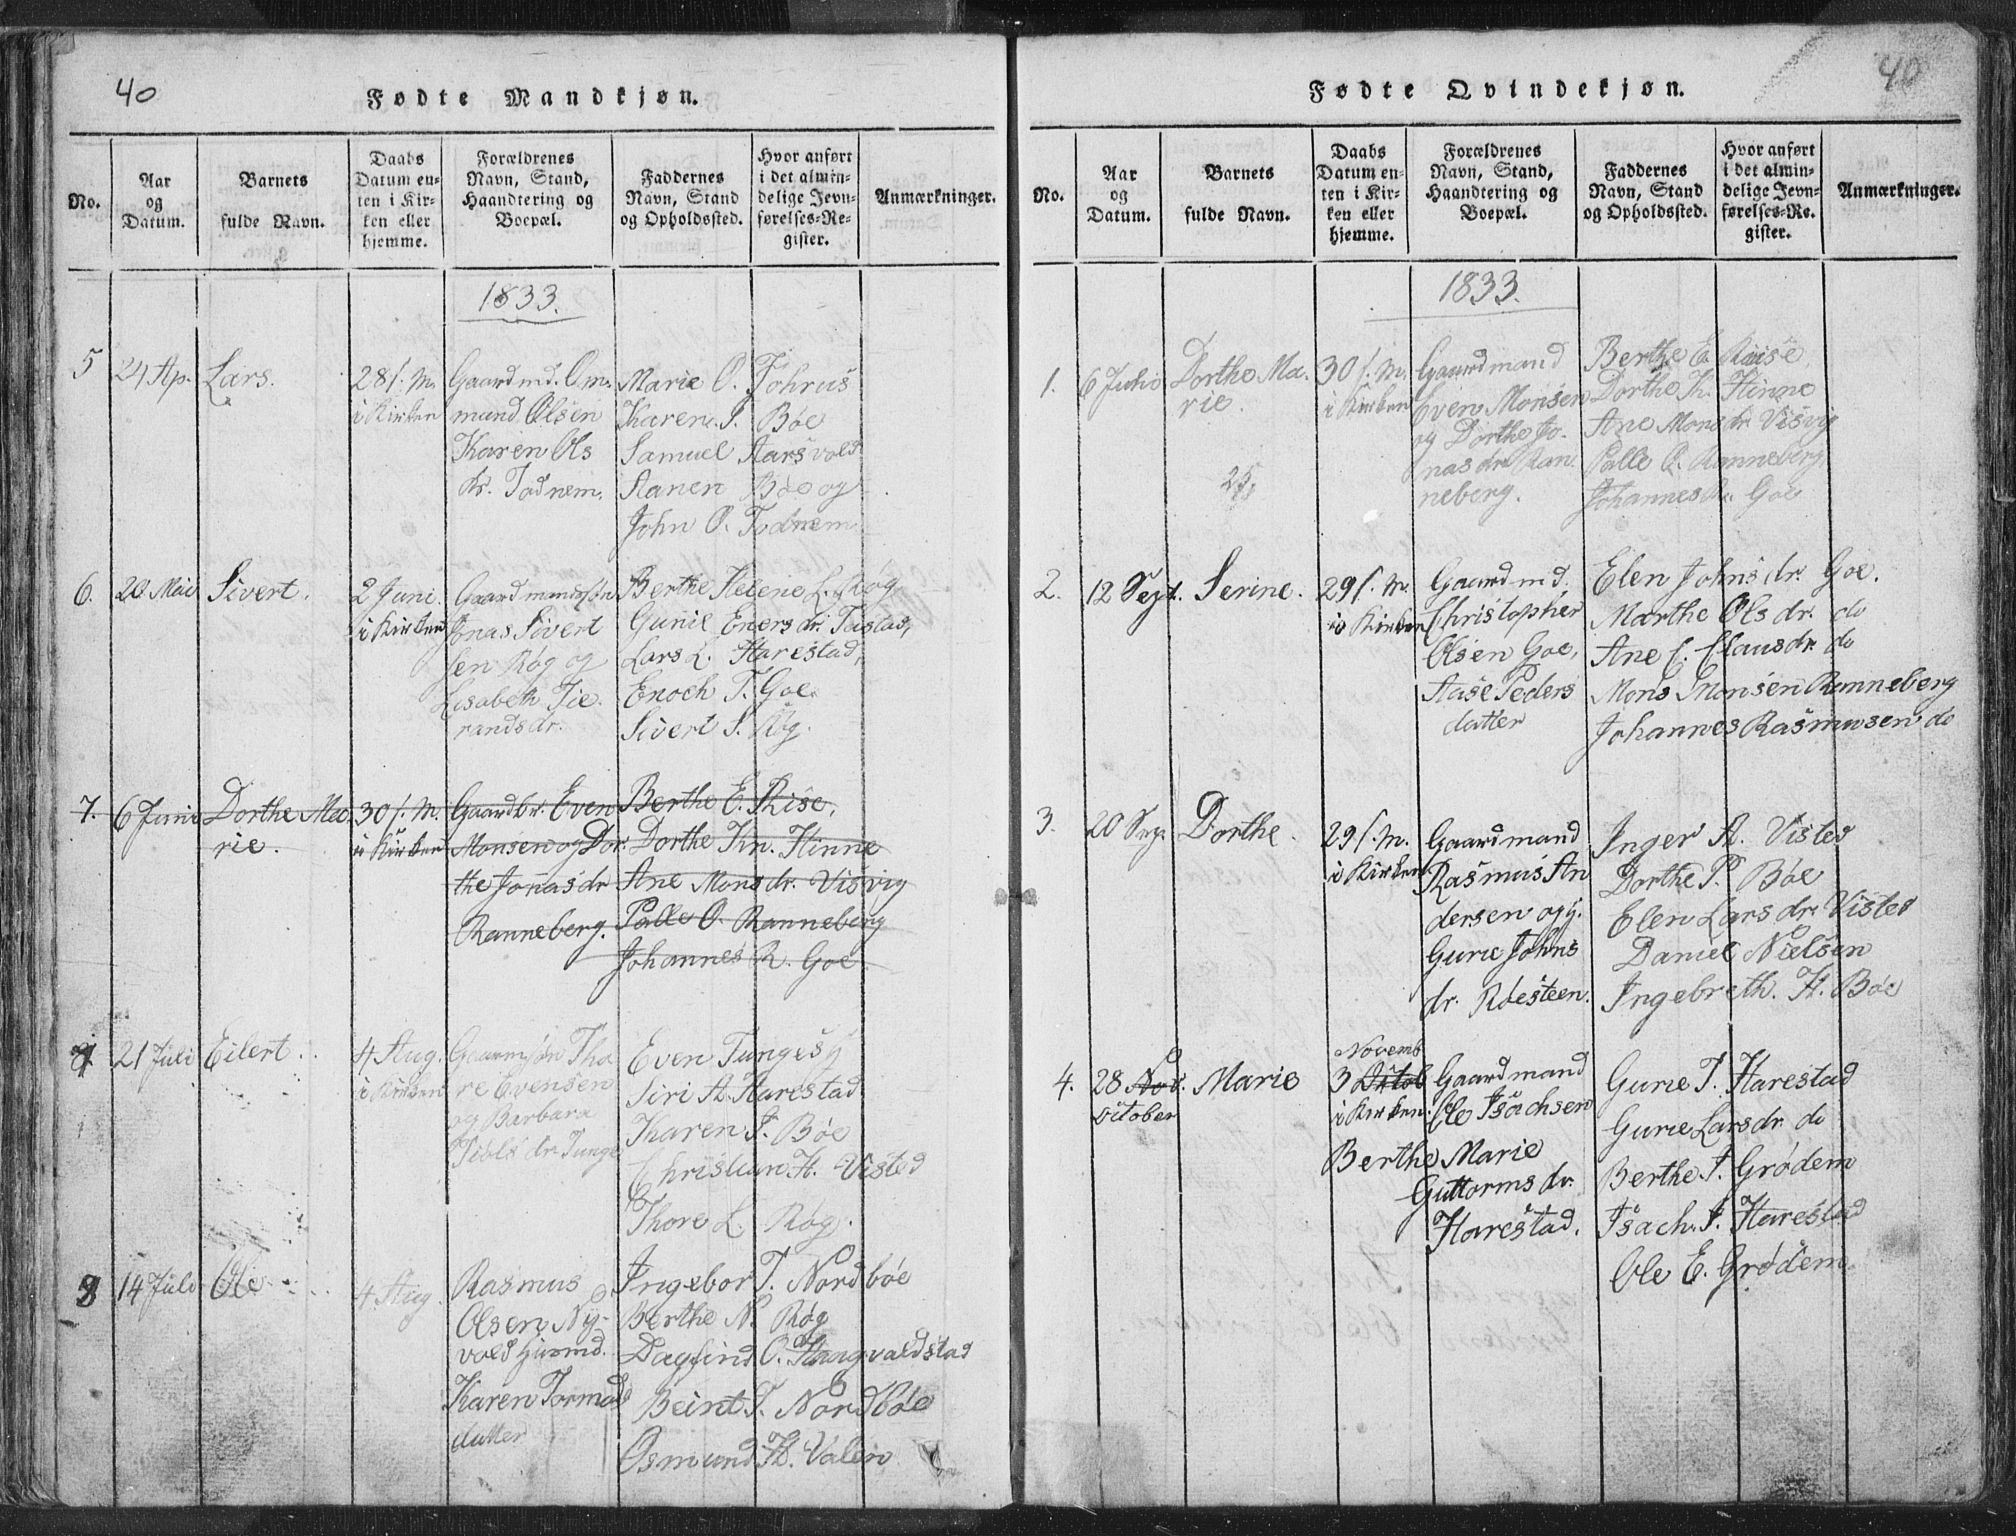 40
Fødte Mandkjøn.
No.
Aar
og
Datum.
Barnets
fulde Navn.
Daabs
Datum en-
ten i Kir-
ken eller
hjemme.
Forældrenes
Navn, Stand,
Haandtering og
Boepæl.
Faddernes
Navn, Stand
og Opholdssted.
Hvor anført
i det almin-
delige Jevn-
førelses-Re-
gister.
Anmærkninger.
1833.
5
24 Ap.
Lars.
28 s. M.
i Kirken
Gaardmd. Om-
mund Olsen
Karen Ols
dr. Todnem.
Marie O.
Karen J. Bøe
Samuel Aarsvold
Aanen Bøe og
John O. Todnem
6.
20 Mai
Sivert.
2 Juni.
i Kirken
Gaardmands
Jonas Sivert
sen Røg og
Lisabeth Tie-
randsdr.
Berthe Helene L. Røg
Gunil Enersdr. Tastad,
Lars L. Harestad,
Enoch T. Goe.
Sivert S. Røg.
7.
6 Juni
Dorthe Ma
rie.
30 s. M.
i Kirken
Gaardbr. Even
Monsen og Dor-
the Jonasdr
Ranneberg.
Berthe E. Rise,
Dorthe Kn. Hinne
Ane Monsdr. Visvig
Palle O. Ranneberg
Johannes R. Goe.
8
21 Juli
Eilert..
4 Aug.
i Kirken
Tho
re Evensen
og Barbara
dr. Tunge
Even Tunge
Siri A. Harestad
Karen J. Bøe
Christian H. Visted
Thore L. Røg.
14 Juli
Ole
4 Aug.
Rasmus
Olsen Ny-
vold Husmd.
Karen Tormod
datter
Ingebor T. Nordbøe
Berthe N. Røg
Dagfind O. Haugvaldstad
Beint T. Nordbøe
Osmund H. Valen
40
Fødte Qvindekjøn.
No.
Aar
og
Datum.
Barnets
fulde Navn.
Daabs
Datum en-
ten i Kir-
ken eller
hjemme.
Forældrenes
Navn, Stand,
Haandtering og
Boepæl.
Faddernes
Navn, Stand
og Opholdssted.
Hvor anført
i det almin-
delige Jevn-
førelses-Re-
gister.
Anmærkninger.
1833.
1.
6 Juni
Dorthe Ma-
rie.
30 s. M.
i Kirken
Gaardmand
Even Monsen
og Dorthe Jo-
nasdr Ran-
neberg.
Berthe E. Riise
Dorthe K. Hinne
Ane Monsdr Visvig
Palle O. Ranneberg
Johannes R. Goe
2.
12 Sept.
Serine.
29 s. M.
i Kirken
Gaardmd.
Christopher
Olsen Goe,
Aase Peders
datter
Elen Johnsdr. Goe.
Marthe Olsdr. do
Ane C. Clausdr. do
Mons Monsen Ranneberg
Johannes Rasmusen do
3.
20 Sep.
Dorthe.
29 s. M.
i Kirken
Gaardmand
Rasmus An
dersen og
Gurie Johns
dr. Røesteen.
Inger A. Visted
Dorthe P. Bøe
Elen Larsdr. Visted
Daniel Nielsen
Ingebreth. H. Bøe
4.
28 Nov.
October
Marie
Novemb
3 Octob
i Kirken.
Gaardmand
Ole Isachsen
Berthe Marie
Guttormsdr.
Harestad.
Gurie T. Harestad
Gurie Larsdr. do
Berthe J. Grødem
Isach. J. Harestad
Ole E. Grødem